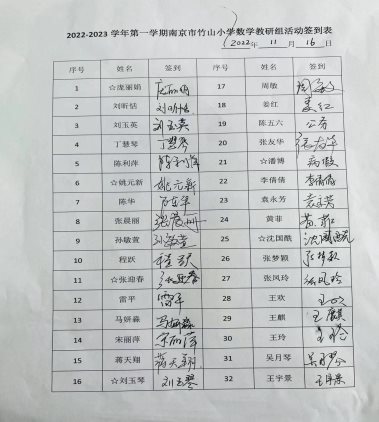 2022-2023 学年第一学期南京市竹山小学数学教研组活动签到表
2022 年 11 月 16 日
序号 姓名 签到 序号 姓名 签到
1 ☆庞丽娟 庞丽娟 17 周敏 周敏
2 刘昕恬 刘昕恬 18 姜红 姜红
3 刘玉英 刘玉英 19 陈五六 公务
4 丁慧琴 丁慧琴 20 张友华 张友华
5 陈利萍 陈利萍 21 ☆潘博 病假
6 ☆姚元新 姚元新 22 李倩倩 李倩倩
7 陈华 陈华 23 袁永芳 袁永芳
8 张晨丽 24 黄菲 黄菲
9 孙敏萱 孙敏萱 25 ☆沈国酷
10 程跃 程跃 26 张梦颖
11 ☆张迎春 张迎春 27 张凤玲 张凤玲
12 雷平 雷平 28 王欢 王欢
13 马妍淼 马妍淼 29 王麒 王麒
14 宋丽萍 宋丽萍 30 王玲 王玲
15 蒋天翔 蒋天翔 31 吴月琴 吴月琴
16 ☆刘玉琴 刘玉琴 32 王宇景 王宇景